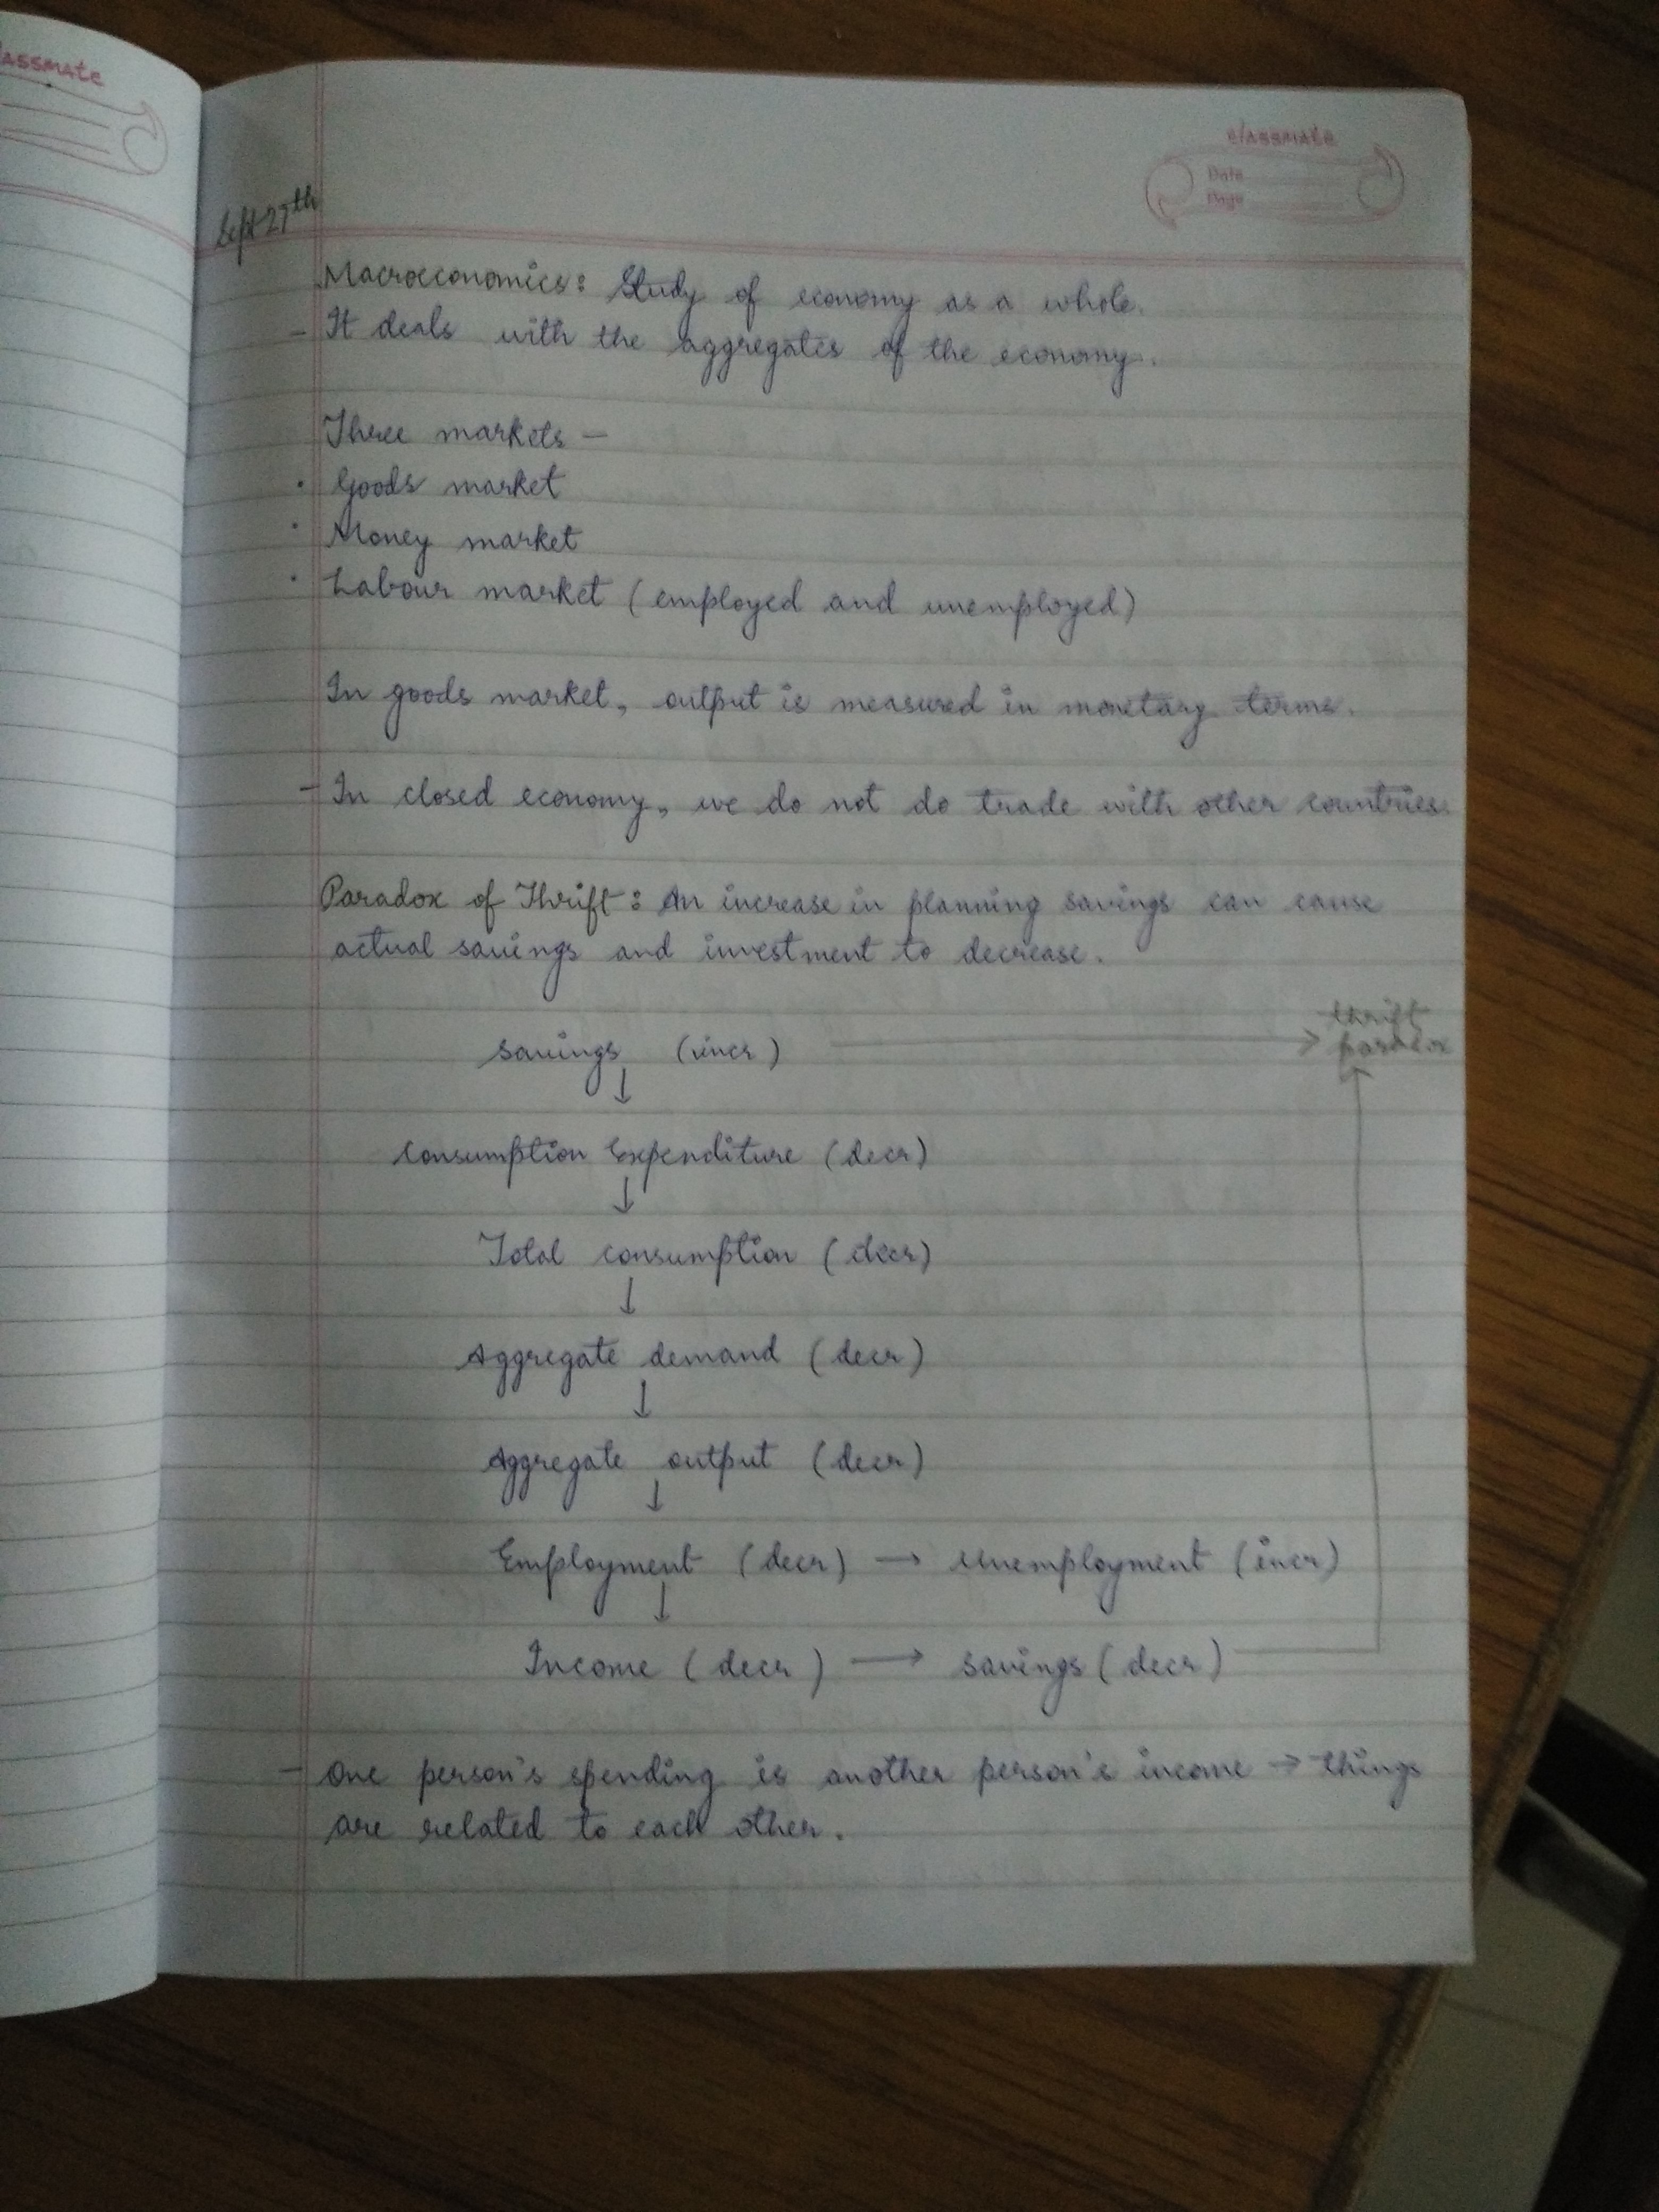 classmate
classmate
Date
Page
Sept 27th
Macroeconomics: Study of economy as a whole.
- It deals with the aggregates of the economy.
Three markets -
· Goods market
· Money market
· Labour market (employed and unemployed)
In goods market, output is measured in monetary terms.
- In closed economy, we do not do trade with other countries.
Paradox of Thrift: An increase in planning savings can cause
actual savings and investment to decrease.
thrift
savings (incr) → paradox
↓
Consumption Expenditure (decr)
↓
Total consumption (decr)
↓
Aggregate demand (decr)
↓
Aggregate output (decr)
↓
Employment (decr) → Unemployment (incr)
↓
Income (decr) → savings (decr)
- One person's spending is another person's income → things
are related to each other.